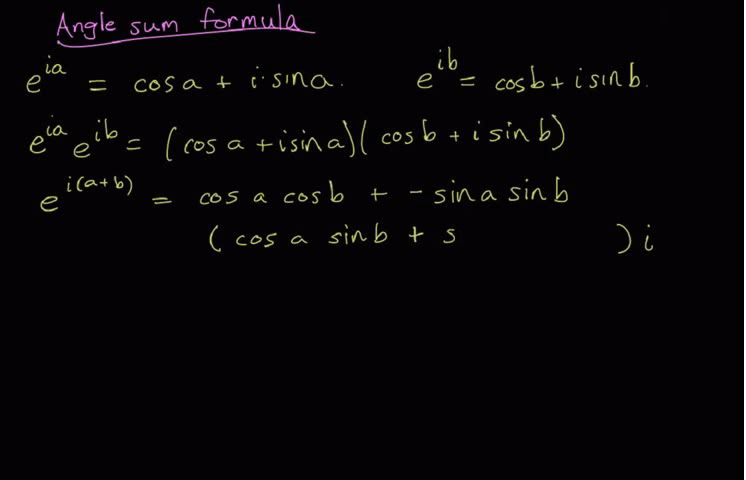 Angle sum formula
e^{ia} = cos a + i·sin a. e^{ib} = cos b + i sin b.
e^{ia} e^{ib} = (cos a + i sin a)(cos b + i sin b)
e^{i(a+b)} = cos a cos b + - sin a sin b
(cos a sin b + s ) i